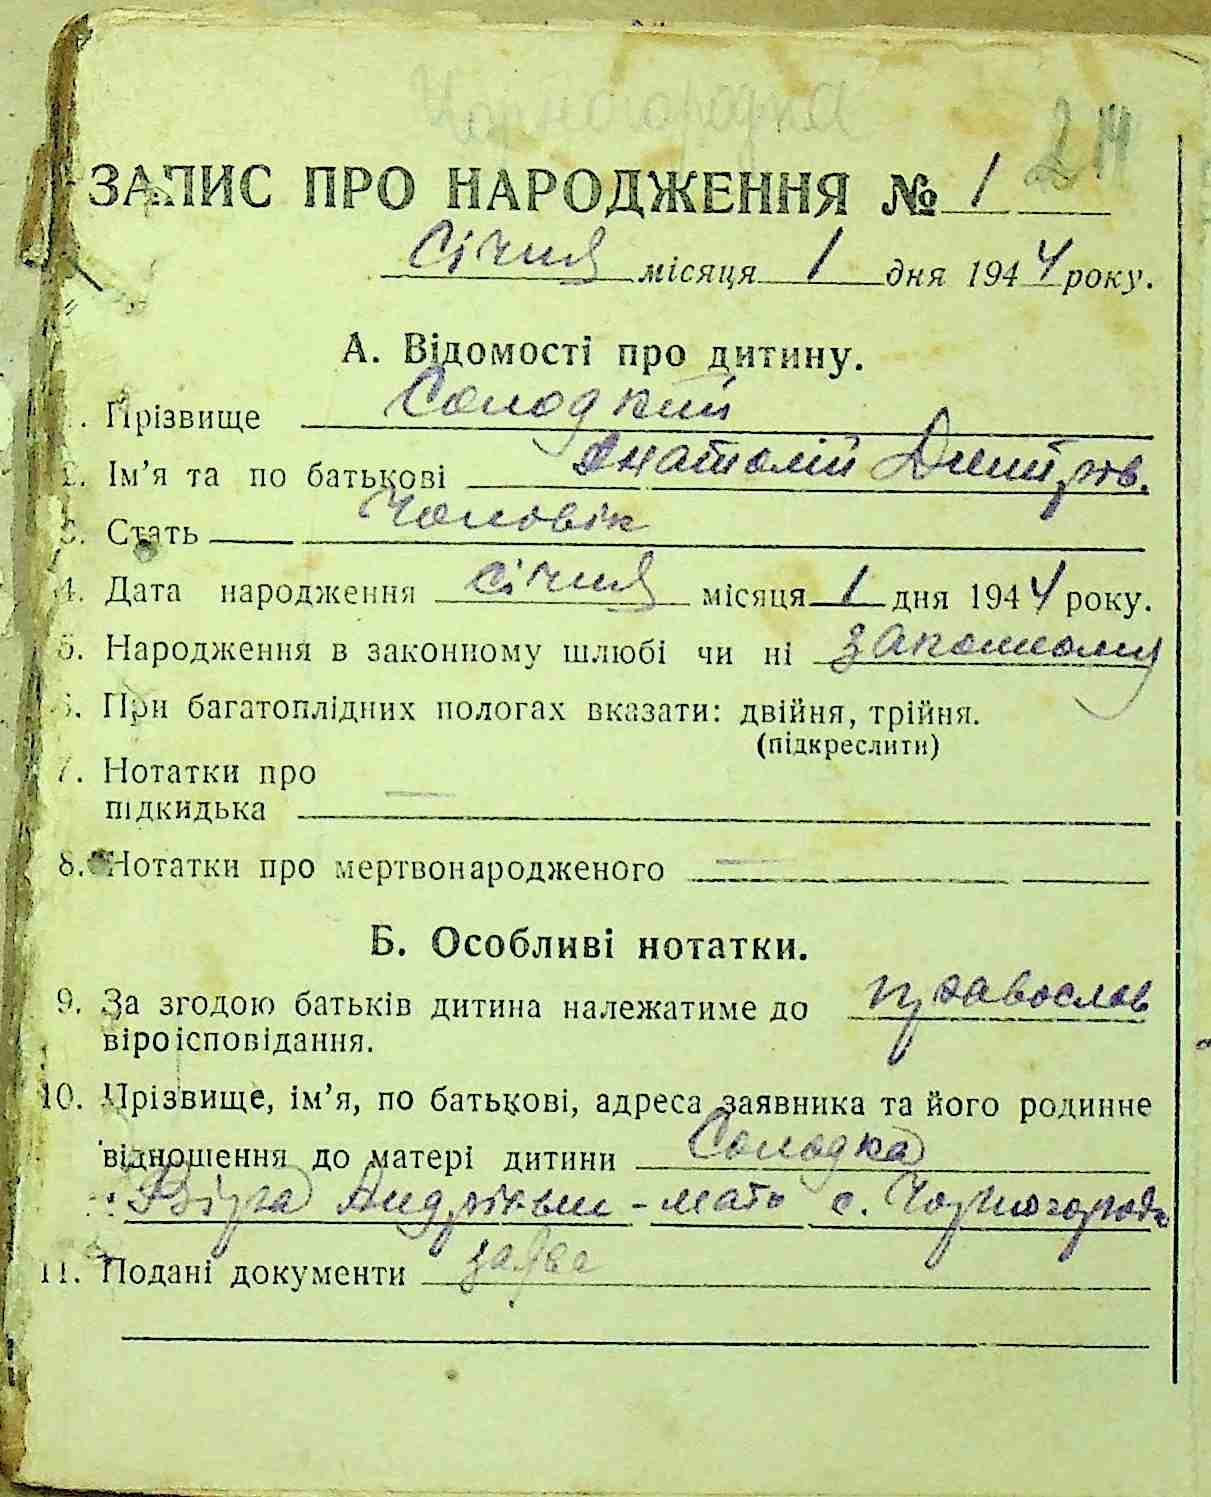 Чорногородка
214
ЗАПИС ПРО НАРОДЖЕННЯ № 1
Січня місяця 1 дня 1944 року.
А. Відомості про дитину.
1. Прізвище Солодкий
2. Ім’я та по батькові Анатолій Дмитров.
3. Стать Чоловік
4. Дата народження січня місяця 1 дня 1944 року.
5. Народження в законному шлюбі чи ні законному
6. При багатоплідних пологах вказати: двійня, трійня.
(підкреслити)
7. Нотатки про
підкидька —
8. Нотатки про мертвонародженого —
Б. Особливі нотатки.
9. За згодою батьків дитина належатиме до православ
віроісповідання.
10. Прізвище, ім’я, по батькові, адреса заявника та його родинне
відношення до матері дитини Солодка
Андріївни - мати с. Чорногородк
11. Подані документи заява